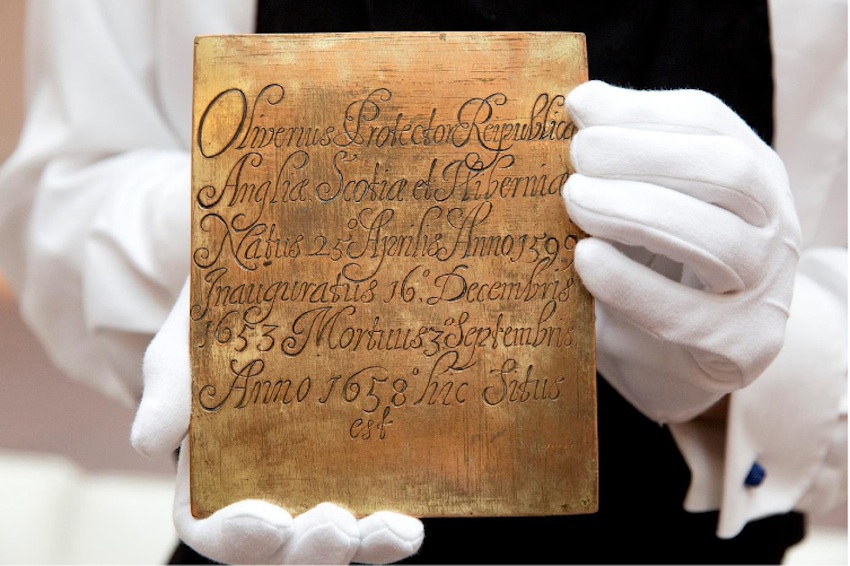 Oliverius Protector Reipublicæ
Angliæ Scotiæ et Hiberniæ
Natus 25° Aprilis Anno 1599
Inauguratus 16° Decembris
1653 Mortuus 3° Septembris
Anno 1658° hic Situs
est